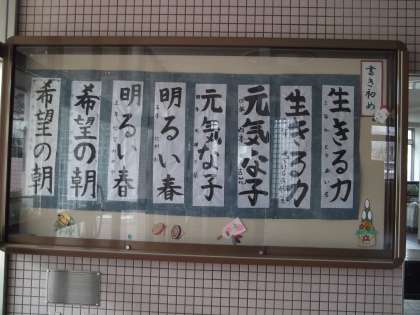 書き初め
生きる力
生きる力
元気な子
元気な子
明るい春
明るい春
希望の朝
希望の朝